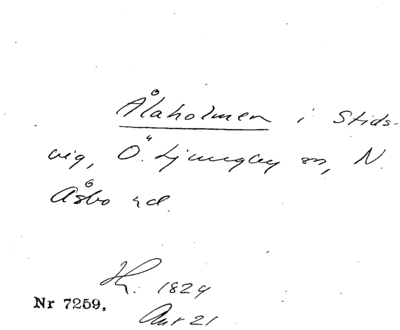 Ålaholmen i Stids-
vig, Ö. Ljungby sn, N.
Åsbo hd.
1824
Nr 7259,
21